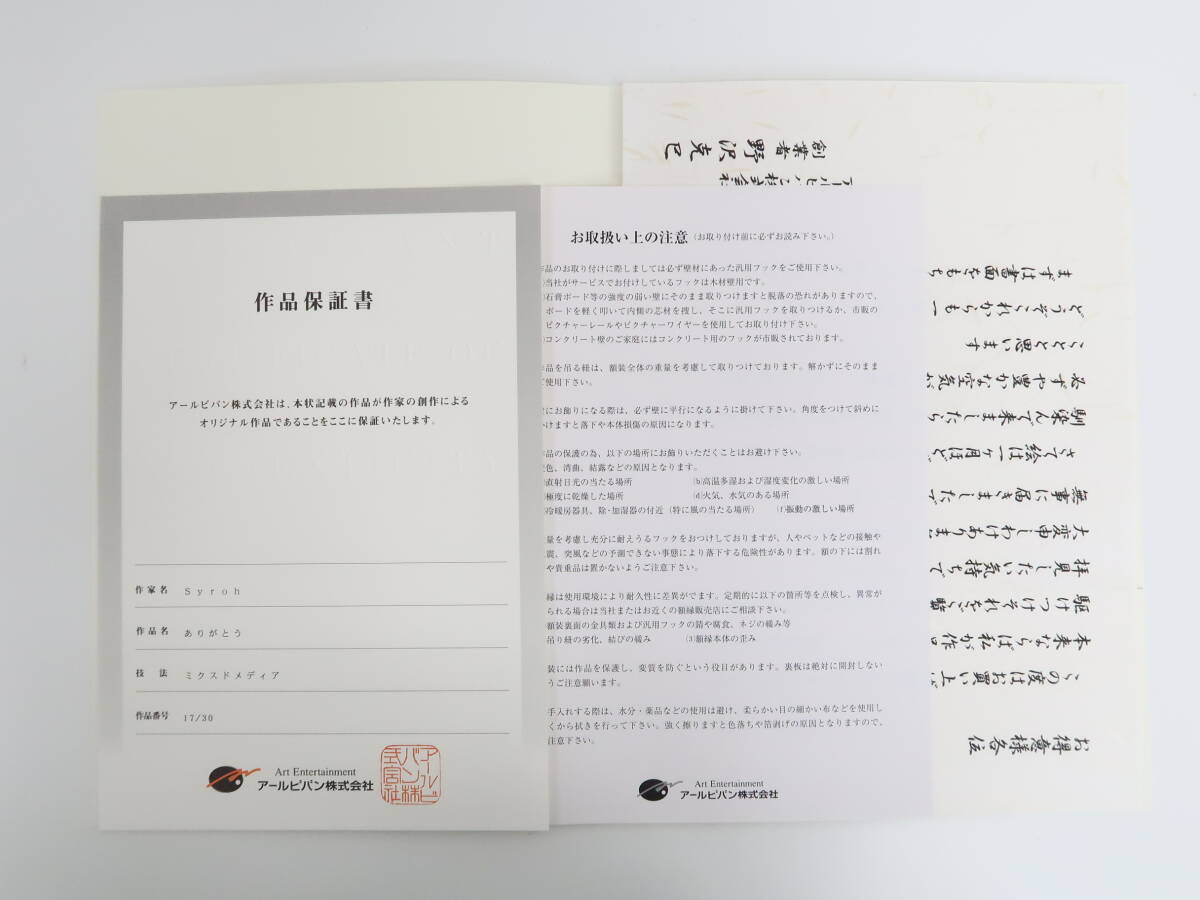 作品保証書
アールビバン株式会社は、本状記載の作品が作家の創作による
オリジナル作品であることをここに保証いたします。
作家名 Syroh
作品名 ありがとう
技法 ミクスドメディア
作品番号 17/30
Art Entertainment
アールビバン株式会社
アールビバン株式会社
お取扱い上の注意(お取り付け前に必ずお読み下さい。)
作品のお取り付けに際しましては必ず壁材にあった汎用フックをご使用下さい。
当社がサービスでお付けしているフックは木材壁用です。
石膏ボード等の強度の弱い壁にそのまま取りつけますと脱落の恐れがありますので、
ボードを軽く叩いて内側の芯材を捜し、そこに汎用フックを取りつけるか、市販の
ピクチャーレールやピクチャーワイヤーを使用してお取り付け下さい。
コンクリート壁のご家庭にはコンクリート用のフックが市販されております。
作品を吊る紐は、額装全体の重量を考慮して取りつけております。解かずにそのまま
ご使用下さい。
にお飾りになる際は、必ず壁に平行になるように掛けて下さい。角度をつけて斜めに
かけますと落下や本体損傷の原因になります。
作品の保護の為、以下の場所にお飾りいただくことはお避け下さい。
変色、湾曲、結露などの原因となります。
直射日光の当たる場所 (b)高温多湿および湿度変化の激しい場所
極度に乾燥した場所 (d)火気、水気のある場所
冷暖房器具、除・加湿器の付近(特に風の当たる場所) (f)振動の激しい場所
量を考慮し充分に耐えうるフックをおつけしておりますが、人やペットなどの接触や
震、突風などの予測できない事態により落下する危険性があります。額の下には割れ
や貴重品は置かないようご注意下さい。
縁は使用環境により耐久性に差異がでます。定期的に以下の箇所等を点検し、異常が
られる場合は当社またはお近くの額縁販売店にご相談下さい。
額装裏面の金具類および汎用フックの錆や腐食、ネジの緩み等
吊り紐の劣化、結びの緩み (3)額縁本体の歪み
装には作品を保護し、変質を防ぐという役目があります。裏板は絶対に開封しない
うご注意願います。
手入れする際は、水分・薬品などの使用は避け、柔らかい目の細かい布などを使用し
くから拭きを行って下さい。強く擦りますと色落ちや箔剥げの原因となりますので、
注意下さい。
Art Entertainment
アールビバン株式会社
お得意様各位
この度はお買い上げ
本来ならば私が作品
駆けつけそれをご覧
拝見したい気持ちで
大変申しわけありま
無事に届きましたで
さて絵は一ヶ月ほど
馴染んで来ましたら
必ずや豊かな空気が
ことと思います
どうぞこれからも一
まずは書面をもち
アールビバン株式会社
創業者 野沢克巳